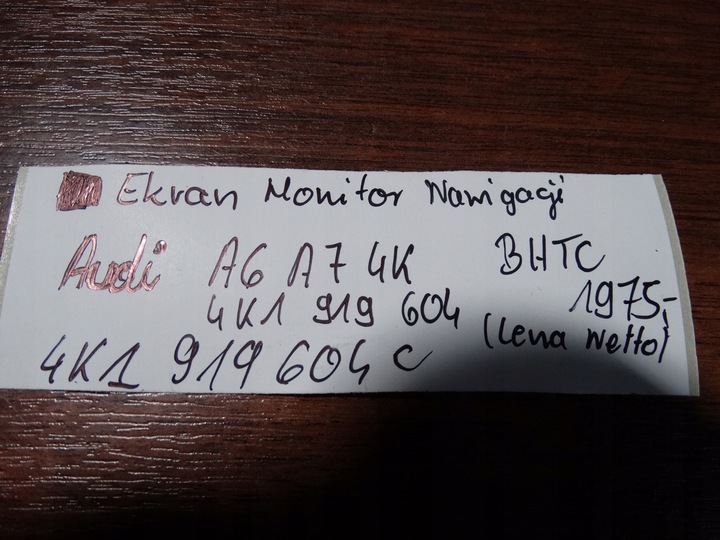 Ekran Monitor Nawigacji
Audi A6 A7 4K BHTC
4K1 919 604 1975,-
(Cena Netto)
4K1 919 604 C